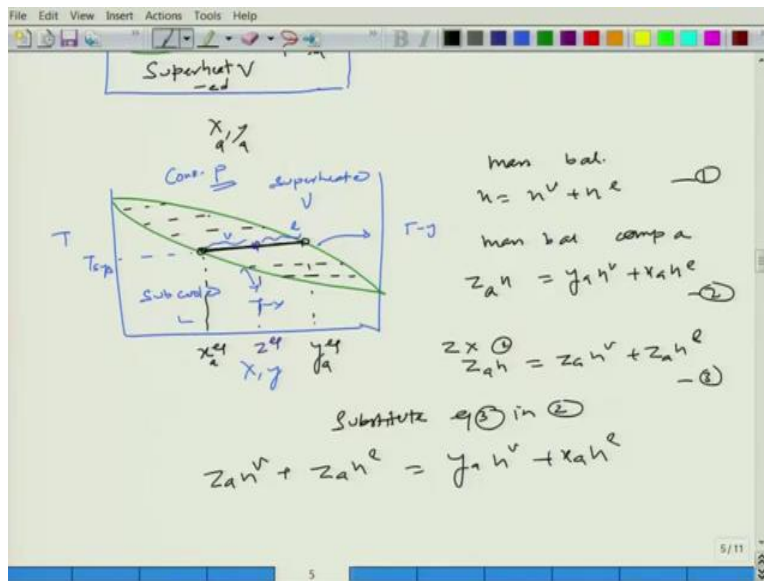 File Edit View Insert Actions Tools Help
B I
Superheat V
-ed
x_a, y_a
Cons. P
superheated
V
T
T-y
v
l
Subcooled
L
T-x
x_a^eq z^eq y_a^eq
x, y
mass bal.
n = n^v + n^l —①
mass bal comp a
z_a n = y_a n^v + x_a n^l —②
z × ①
z_a n = z_a n^v + z_a n^l —③
Substitute eq ③ in ②
z_a n^v + z_a n^l = y_a n^v + x_a n^l
5/11
5